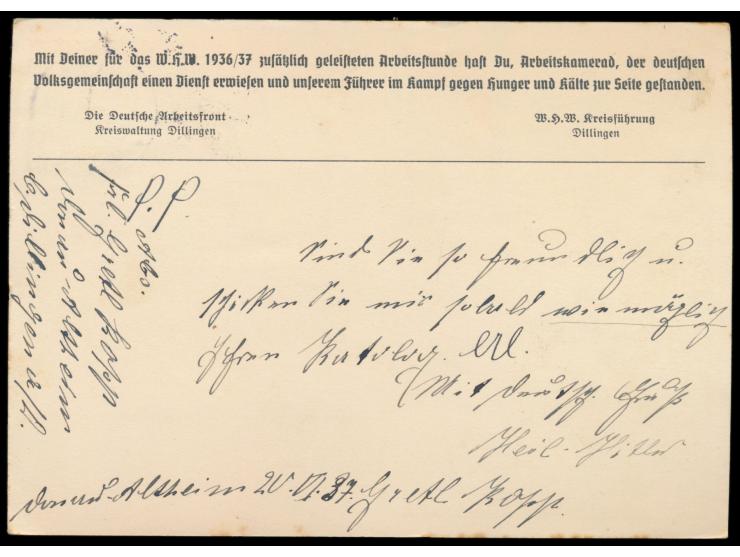 Mit Deiner für das W.H.W. 1936/37 zusätzlich geleisteten Arbeitsstunde hast Du, Arbeitskamerad, der deutschen
Volksgemeinschaft einen Dienst erwiesen und unserem Führer im Kampf gegen Hunger und Kälte zur Seite gestanden.
Die Deutsche Arbeitsfront
Kreiswaltung Dillingen
W.H.W. Kreisführung
Dillingen
P. P.
Sind Sie so freundlich u.
schicken Sie mir sobald wie möglich
Ihren Katalog.
Mit deutsch. Gruß
Heil-Hitler
Donau-Altheim 20.VI.37. Gretl Kopp.
Abs.
Frl. Gretl Kopp
Donau Altheim
b/Dillingen a/D.